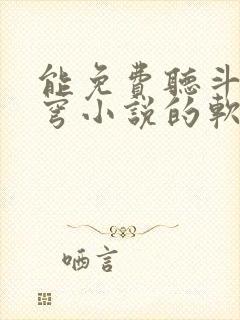 能免費聽斗
穹小説的軟
哂言